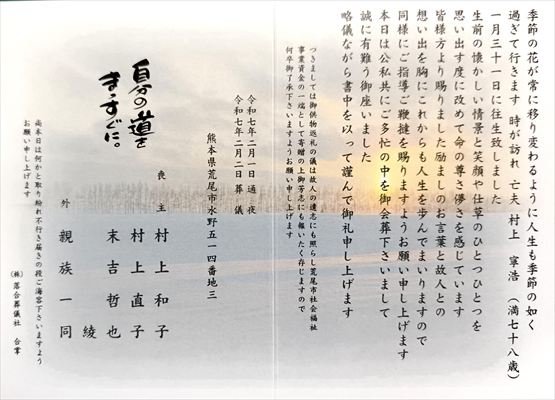 季節の花が常に移り変わるように人生も季節の如く
過ぎて行きます 時が訪れ 亡夫 村上 寧浩 (満七十八歳)
一月三十一日に往生致しました
生前の懐かしい情景と笑顔や仕草のひとつひとつを
思い出す度に改めて命の尊さ儚さを感じています
皆様方より賜りました励ましのお言葉と故人との
想い出を胸にこれからも人生を歩んでまいりますので
同様にご指導ご鞭撻を賜りますようお願い申し上げます
本日は公私共にご多忙の中を御会葬下さいまして
誠に有難う御座いました
略儀ながら書中を以って謹んで御礼申し上げます
つきましては御供物巡礼の儀は故人の遺志にも照らし荒尾市社会福祉
事業資金の一端として寄贈の上御芳志にも報いたく存じますので
何卒御了承下さいますようお願い申し上げます
令和七年二月一日通夜
令和七年二月二日葬儀
熊本県荒尾市水野五一四番地三
自分の道を
まっすぐに。
喪主 村上和子
村上直子
末吉哲也
綾
外 親族一同
尚本日は何かと取り紛れ不行き届きの段ご海容下さいますよう
お願い申し上げます
(株) 落合葬儀社 合掌